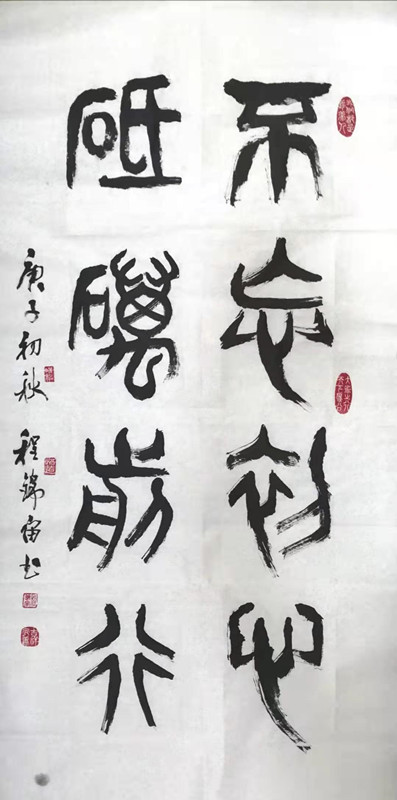 不忘初心
砥礪前行
庚子初秋 程錦宙书